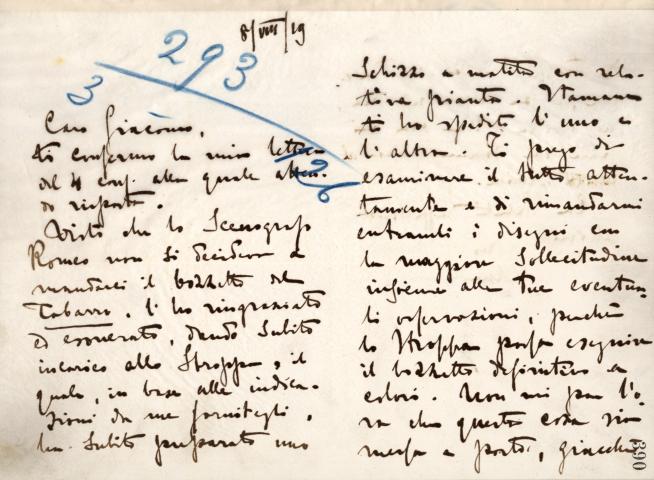 8/VIII/19
293
3
26
Caro Giacomo,
ti confermo la mia lettera
del 4 corr. alla quale atten-
do risposta.
Visto che lo Scenografo
Romeo non si decideva a
mandarci il bozzetto del
Tabarro, l'ho ringraziato
ed esonerato, dando subito
incarico allo Stroppa, il
quale, in base alle indica-
zioni da me fornitegli,
ha subito preparato uno
Schizzo a matita con rela-
tiva pianta. Stamane
ti ho spedito l'uno e
l'altra. Ti prego di
esaminare il tutto atten-
tamente e di rimandarmi
entrambi i disegni con
la maggiore sollecitudine
insieme alle tue eventua-
li osservazioni, perchè
lo Stroppa possa eseguire
il bozzetto definitivo a
colori. Non mi par l'o-
ra che questa cosa sia
messa a posto, giacchè
390